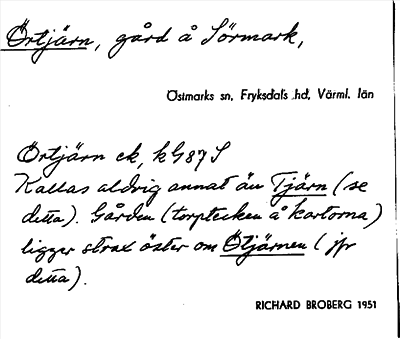 Örtjärn, gård å Sörmark,
Östmarks sn, Fryksdals hd, Värml. län
Örtjärn ek, kG87S
Kallas aldrig annat än Tjärn (se
detta). Gården (torptecken å kartorna)
ligger strax öster om Ötjärnen (jfr
detta).
RICHARD BROBERG 1951